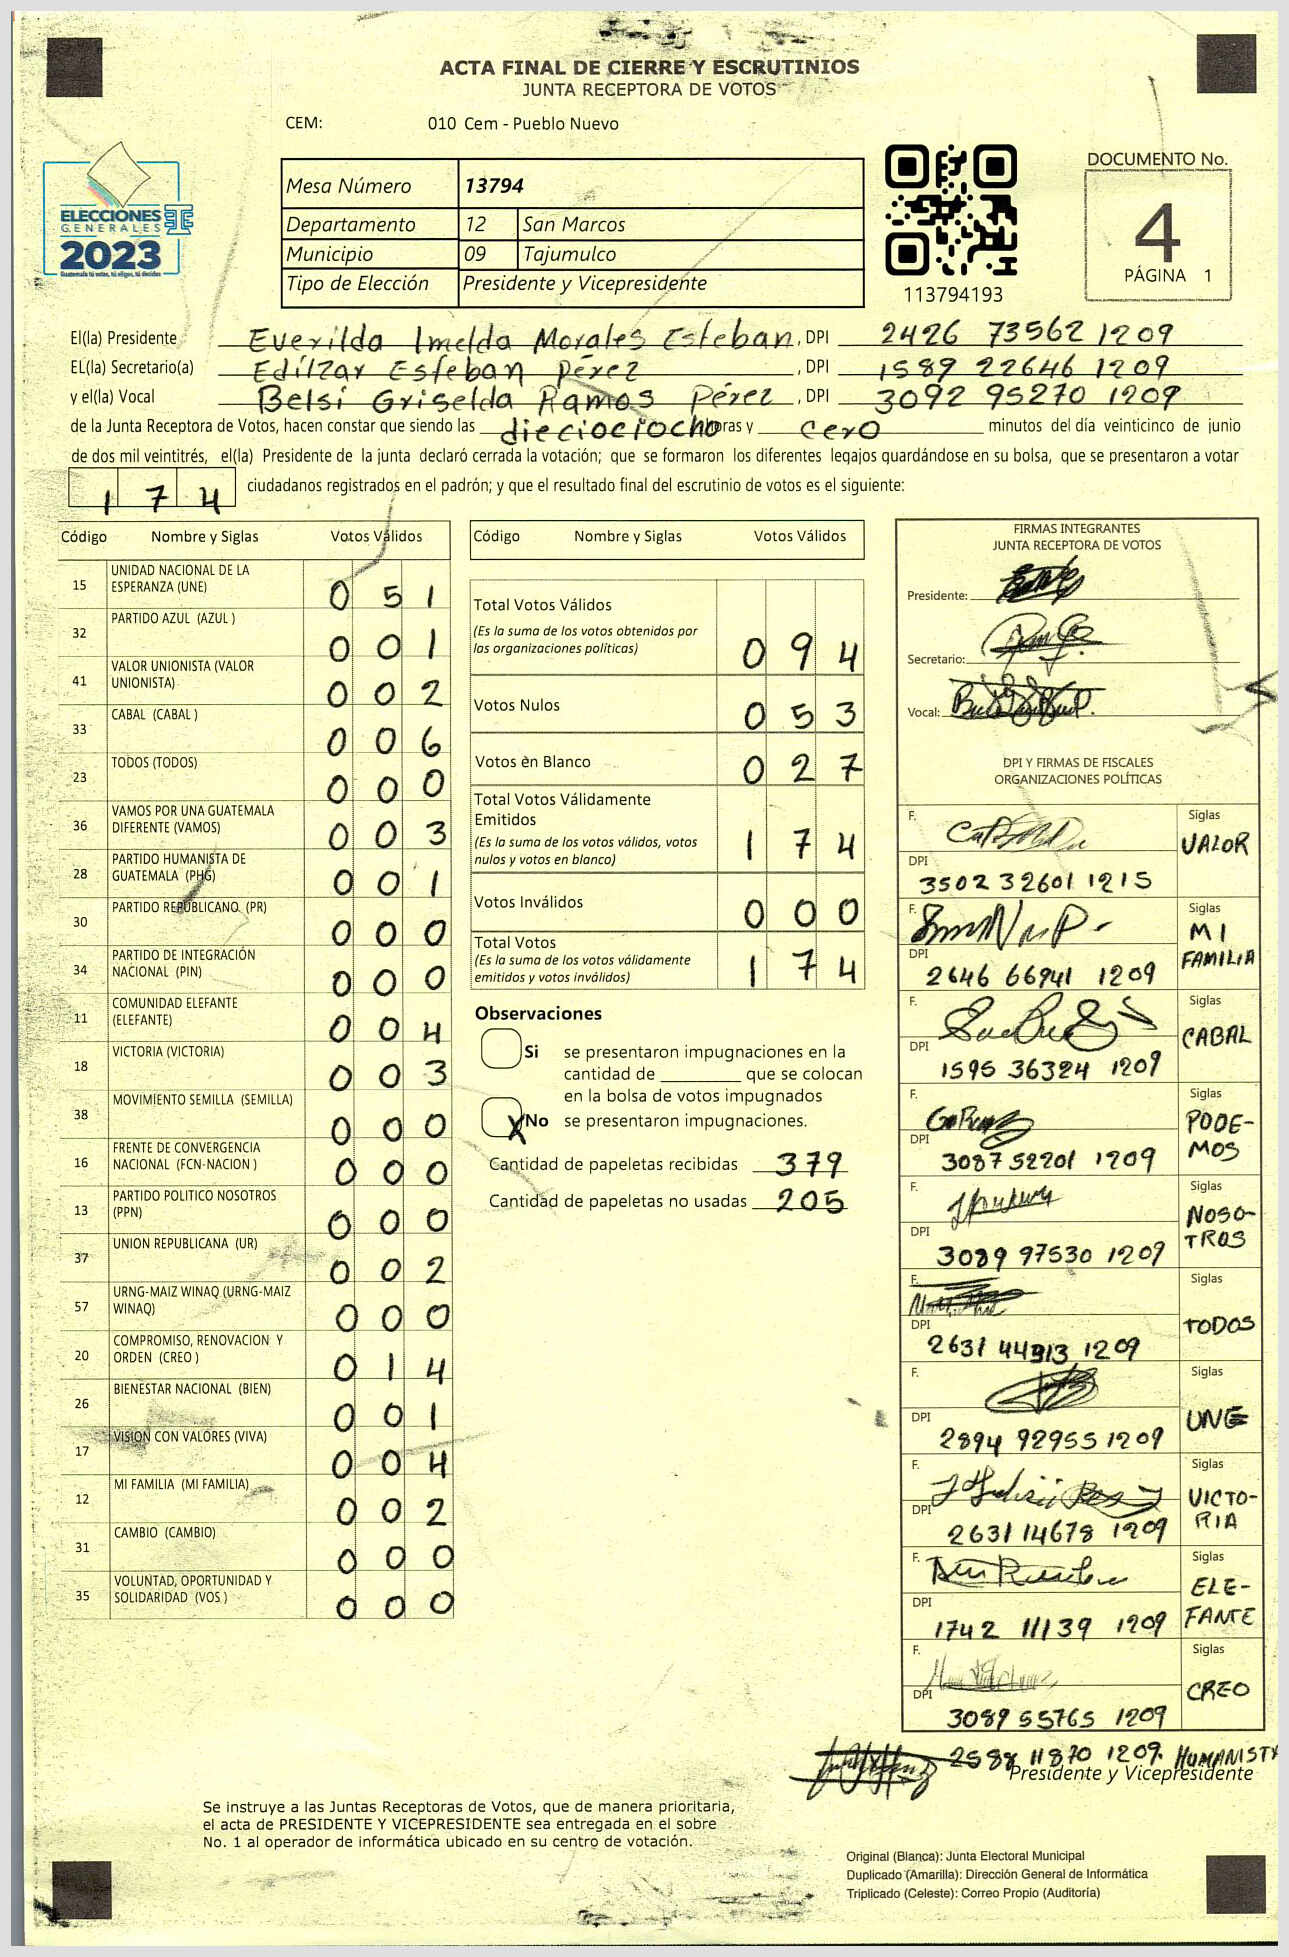 ACTA FINAL DE CIERRE Y ESCRUTINIOS
JUNTA RECEPTORA DE VOTOS
CEM: 010 Cem - Pueblo Nuevo
ELECCIONES
GENERALES
2023
Guatemala tú votas, tú eliges, tú decides
Mesa Número 13794
Departamento 12 San Marcos
Municipio 09 Tajumulco
Tipo de Elección Presidente y Vicepresidente
113794193
DOCUMENTO No.
4
PÁGINA 1
El(la) Presidente Everilda Imelda Morales Esteban, DPI 2426 73562 1209
EL(la) Secretario(a) Edílzar Esteban Pérez, DPI 1589 22646 1209
y el(la) Vocal Belsi Griselda Ramos Pérez, DPI 3092 95270 1209
de la Junta Receptora de Votos, hacen constar que siendo las dieciociocho horas y cero minutos del día veinticinco de junio
de dos mil veintitrés, el(la) Presidente de la junta declaró cerrada la votación; que se formaron los diferentes legajos guardándose en su bolsa, que se presentaron a votar
174 ciudadanos registrados en el padrón; y que el resultado final del escrutinio de votos es el siguiente:
Código Nombre y Siglas Votos Válidos
15 UNIDAD NACIONAL DE LA
ESPERANZA (UNE) 0 5 1
32 PARTIDO AZUL (AZUL ) 0 0 1
41 VALOR UNIONISTA (VALOR
UNIONISTA) 0 0 2
33 CABAL (CABAL ) 0 0 6
23 TODOS (TODOS) 0 0 0
36 VAMOS POR UNA GUATEMALA
DIFERENTE (VAMOS) 0 0 3
28 PARTIDO HUMANISTA DE
GUATEMALA (PHG) 0 0 1
30 PARTIDO REPUBLICANO (PR) 0 0 0
34 PARTIDO DE INTEGRACIÓN
NACIONAL (PIN) 0 0 0
11 COMUNIDAD ELEFANTE
(ELEFANTE) 0 0 4
18 VICTORIA (VICTORIA) 0 0 3
38 MOVIMIENTO SEMILLA (SEMILLA) 0 0 0
16 FRENTE DE CONVERGENCIA
NACIONAL (FCN-NACION ) 0 0 0
13 PARTIDO POLITICO NOSOTROS
(PPN) 0 0 0
37 UNION REPUBLICANA (UR) 0 0 2
57 URNG-MAIZ WINAQ (URNG-MAIZ
WINAQ) 0 0 0
20 COMPROMISO, RENOVACION Y
ORDEN (CREO ) 0 1 4
26 BIENESTAR NACIONAL (BIEN) 0 0 1
17 VISION CON VALORES (VIVA) 0 0 4
12 MI FAMILIA (MI FAMILIA) 0 0 2
31 CAMBIO (CAMBIO) 0 0 0
35 VOLUNTAD, OPORTUNIDAD Y
SOLIDARIDAD (VOS ) 0 0 0
Código Nombre y Siglas Votos Válidos
Total Votos Válidos
(Es la suma de los votos obtenidos por
las organizaciones políticas) 0 9 4
Votos Nulos 0 5 3
Votos en Blanco 0 2 7
Total Votos Válidamente
Emitidos
(Es la suma de los votos válidos, votos
nulos y votos en blanco) 1 7 4
Votos Inválidos 0 0 0
Total Votos
(Es la suma de los votos válidamente
emitidos y votos inválidos) 1 7 4
Observaciones
Si se presentaron impugnaciones en la
cantidad de ________ que se colocan
en la bolsa de votos impugnados
X No se presentaron impugnaciones.
Cantidad de papeletas recibidas 379
Cantidad de papeletas no usadas 205
FIRMAS INTEGRANTES
JUNTA RECEPTORA DE VOTOS
Presidente:
Secretario:
Vocal:
DPI Y FIRMAS DE FISCALES
ORGANIZACIONES POLÍTICAS
F. Siglas
VALOR
DPI
3502 32601 1215
F. Siglas
MI
FAMILIA
DPI
2646 66941 1209
F. Siglas
CABAL
DPI
1595 36324 1209
F. Siglas
PODE-
MOS
DPI
3087 52201 1209
F. Siglas
NOSO-
TROS
DPI
3089 97530 1209
F. Siglas
TODOS
DPI
2631 44313 1209
F. Siglas
UNE
DPI
2894 92955 1209
F. Siglas
VICTO-
RIA
DPI
2631 14678 1209
F. Siglas
ELE-
FANTE
DPI
1742 11139 1209
F. Siglas
CREO
DPI
3089 55765 1209
2588 11870 1209. HUMANISTA
Presidente y Vicepresidente
Se instruye a las Juntas Receptoras de Votos, que de manera prioritaria,
el acta de PRESIDENTE Y VICEPRESIDENTE sea entregada en el sobre
No. 1 al operador de informática ubicado en su centro de votación.
Original (Blanca): Junta Electoral Municipal
Duplicado (Amarilla): Dirección General de Informática
Triplicado (Celeste): Correo Propio (Auditoría)